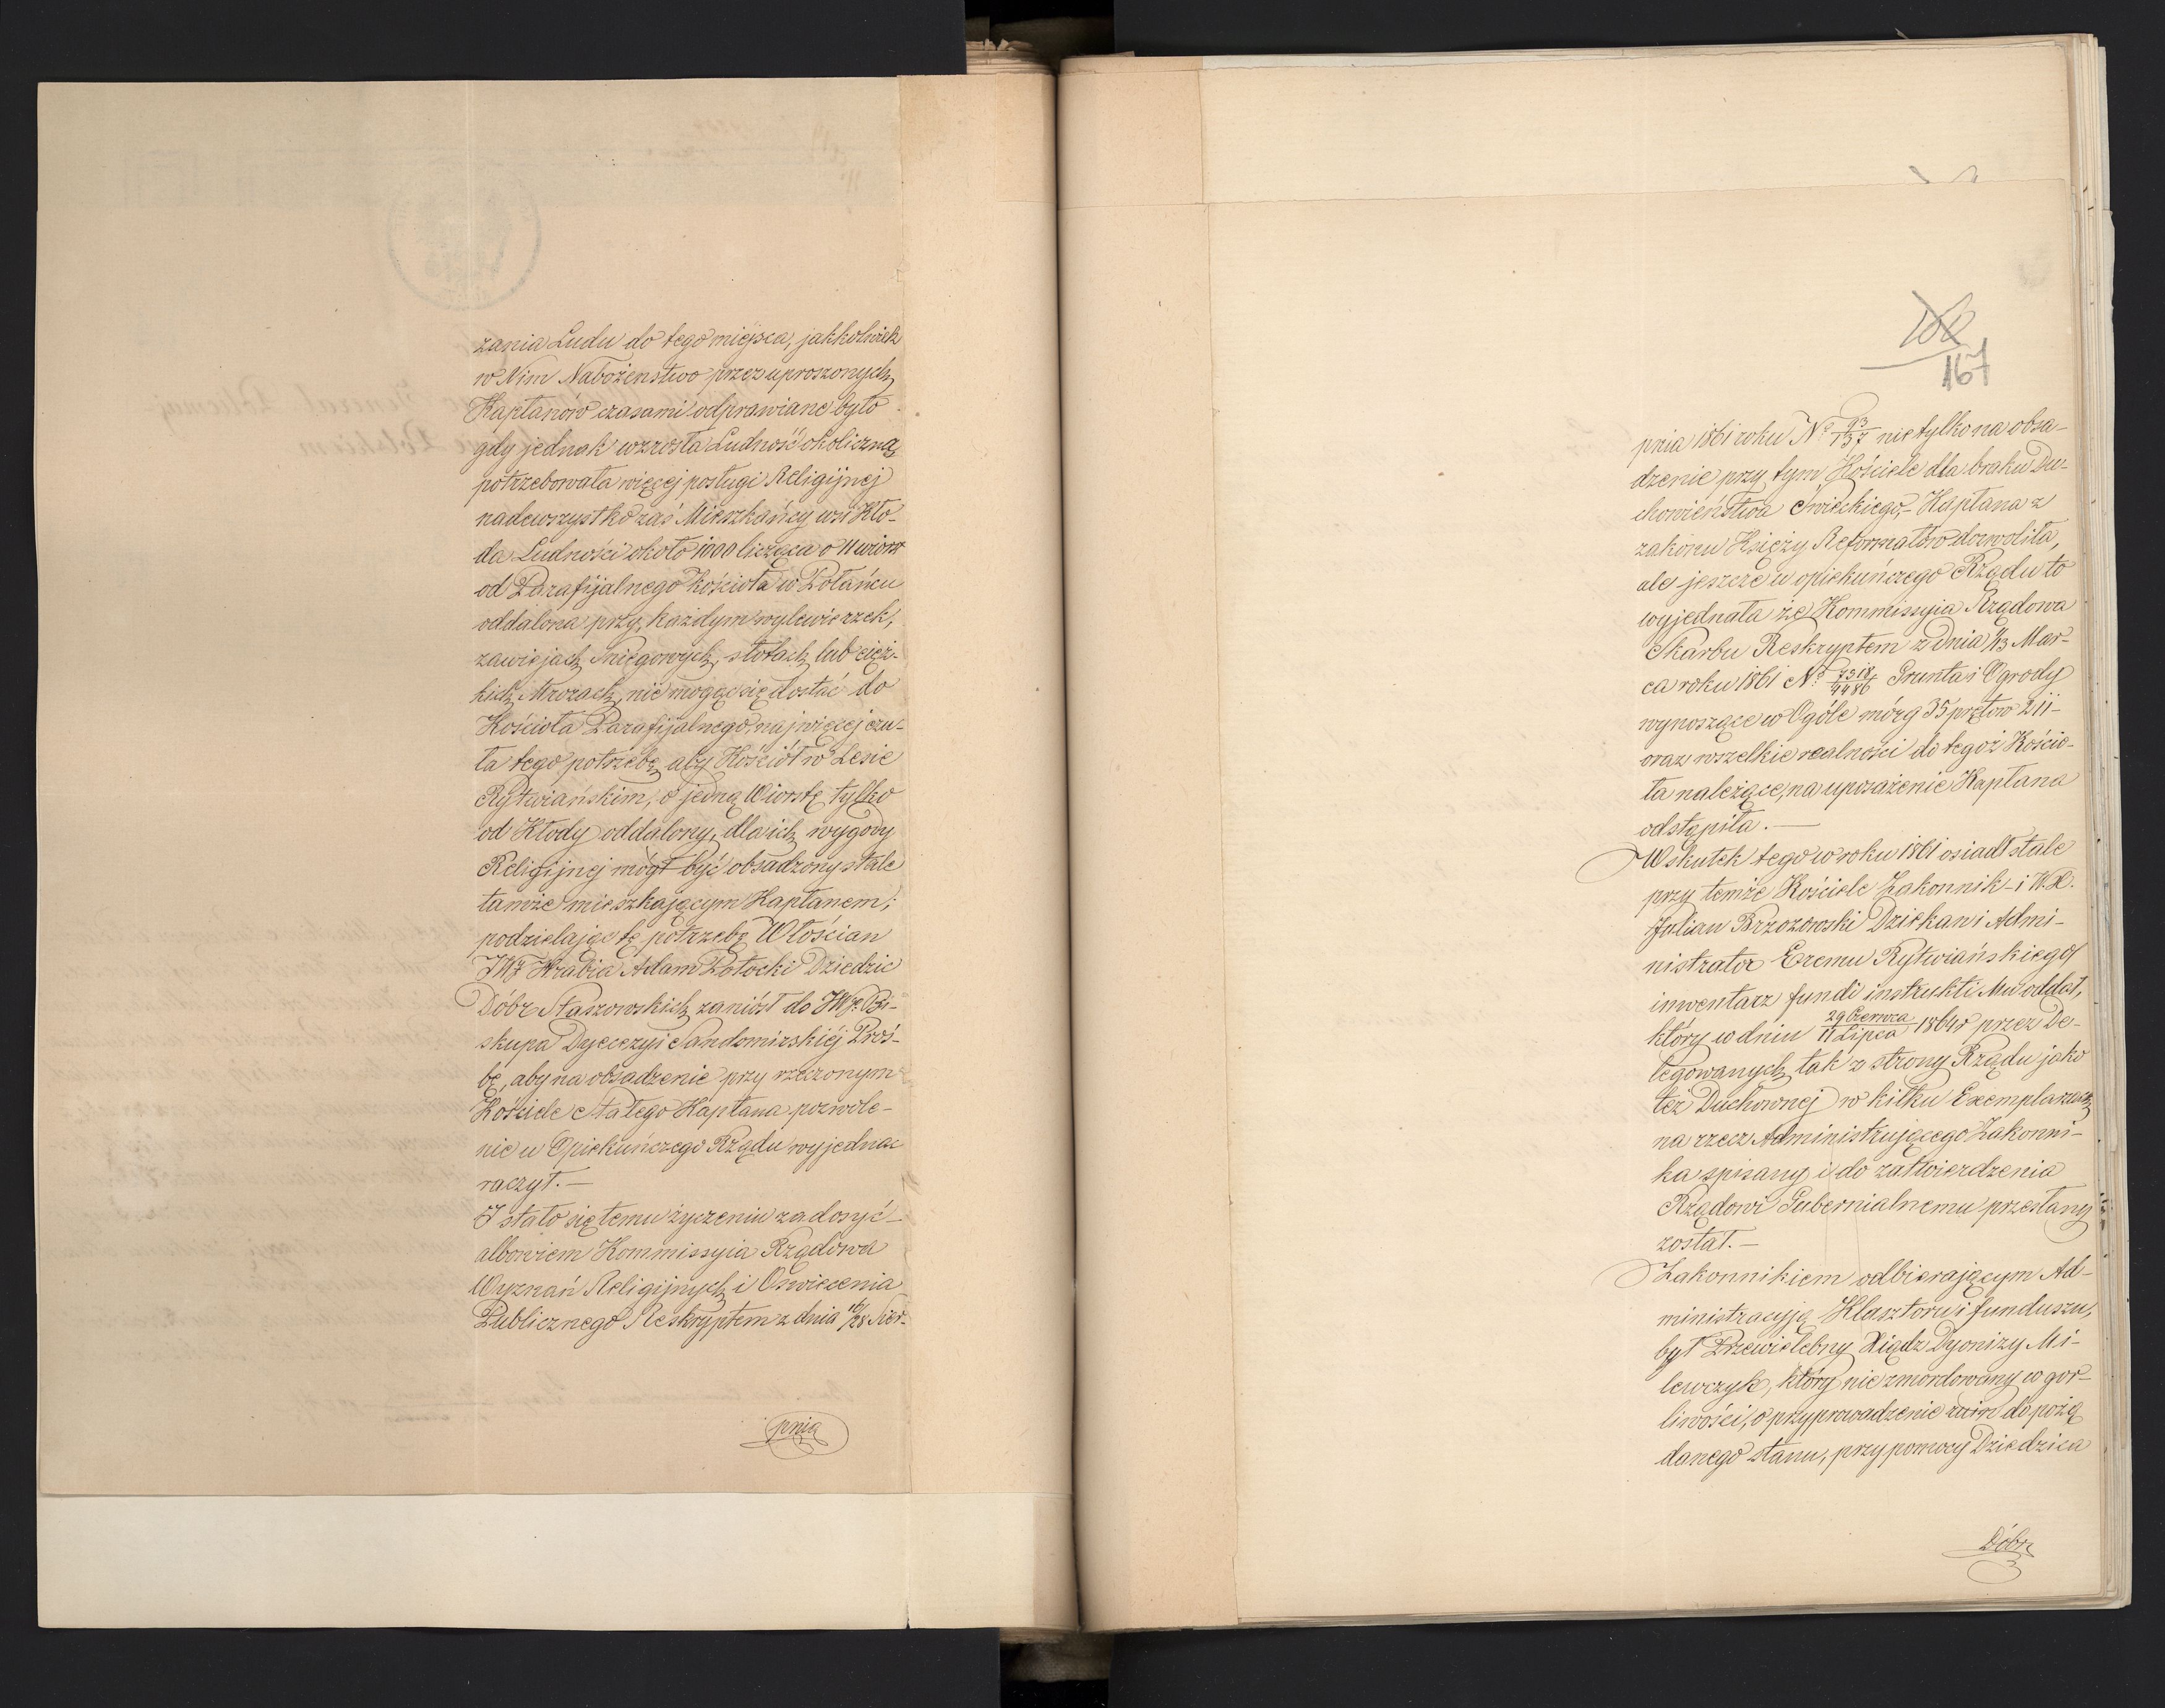 zania Ludu do tego miejsca, jakkolwiek
w Nim Nabożeństwo przez uproszonych
Kapłanów czasami odprawiane było
gdy jednak wzrosła Ludność okoliczna
potrzebowała więcej posługi Religijnej
nadewszystko zaś Mieszkańcy wsi Kło-
da Ludności około 1000 licząca o 11 wiorst
od Parafijalnego Kościoła w Połańcu
oddalona przy każdym wylewie rzek,
zawiejach śniegowych, słotach lub cięż-
kich Mrozach, nie mogąc się dostać do
Kościoła Parafijalnego, najwięcej czu-
ła tego potrzebę aby Kościół w Lesie
Rytwiańskim, o jedną Wiorstę tylko
od Kłody oddalony, dla ich wygody
Religijnej mógł być obsadzony stale
tamże mieszkającym Kapłanem;
podzielając tę potrzebę Włościan
JW. Hrabia Adam Potocki Dziedzic
Dóbr Staszowskich zaniósł do JW. Bi-
skupa Dyecezyi Sandomirskiéj Proś-
bę, aby na obsadzenie przy rzeczonym
Kościele stałego Kapłana pozwole-
nie u Opiekuńczego Rządu wyjednać
raczył. —
I stało się temu życzeniu zadosyć —
albowiem Kommissyia Rządowa
Wyznań Religijnych i Oświecenia
Publicznego Reskryptem z dnia 16/28 Sier-
pnia
167
pnia 1861 roku Nº 93/137 nie tylko na obsa-
dzenie przy tym Kościele dla braku Du-
chowieństwa Świeckiego, - Kapłana z
zakonu Księży Reformatów dozwoliła,
ale jeszcze u opiekuńczego Rządu to
wyjednała że Kommissyia Rządowa
Skarbu Reskryptem z Dnia 1/13 Mar-
ca roku 1861 Nº 7318/4486 Grunta i Ogrody
wynoszące w Ogóle mórg 35 prętów 211 -
oraz wszelkie realności do tegoż Kościo-
ła należące, na uposażenie Kapłana
odstąpiła. —
W skutek tego w roku 1861 osiadł stale
przy temże Kościele Zakonnik - i W. X.
Julian Brzozowski Dziekan i Admi-
nistrator Eremu Rytwiańskiego
inwentarz fundi instrukti Mu oddał,
który w dniu 29 Czerwca/11 Lipca 1864 r przez De-
legowanych tak z strony Rządu jako
też Duchownej w kilku Exemplarzach
na rzecz Administrującego Zakonni-
ka spisany i do zatwierdzenia
Rządowi Gubernialnemu przesłany
został. —
Zakonnikiem odbierającym Ad-
ministracyją Klasztoru i funduszu,
był Przewielebny Xiądz Dyonizy Mi-
lewczyk, który niezmordowany w gor-
liwości, o przyprowadzenie ruin do pożą
danego stanu, przy pomocy Dziedzica
Dóbr